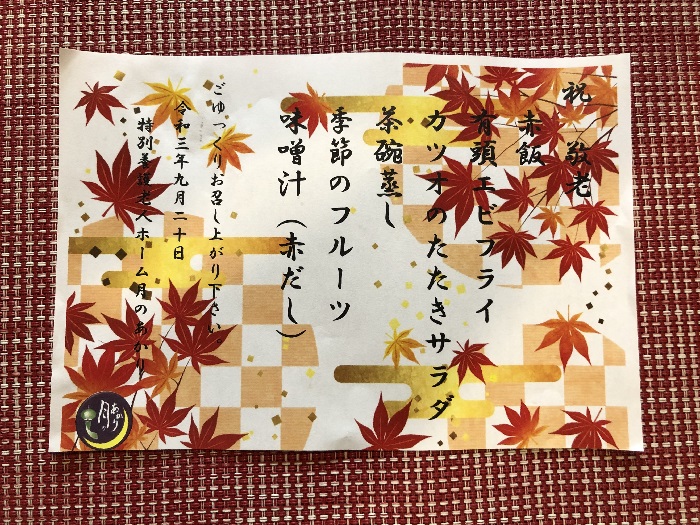 祝 敬老
赤飯
有頭エビフライ
カツオのたたきサラダ
茶碗蒸し
季節のフルーツ
味噌汁（赤だし）
ごゆっくりお召し上がり下さい。
令和三年九月二十日
特別養護老人ホーム月のあかり
月
あかり